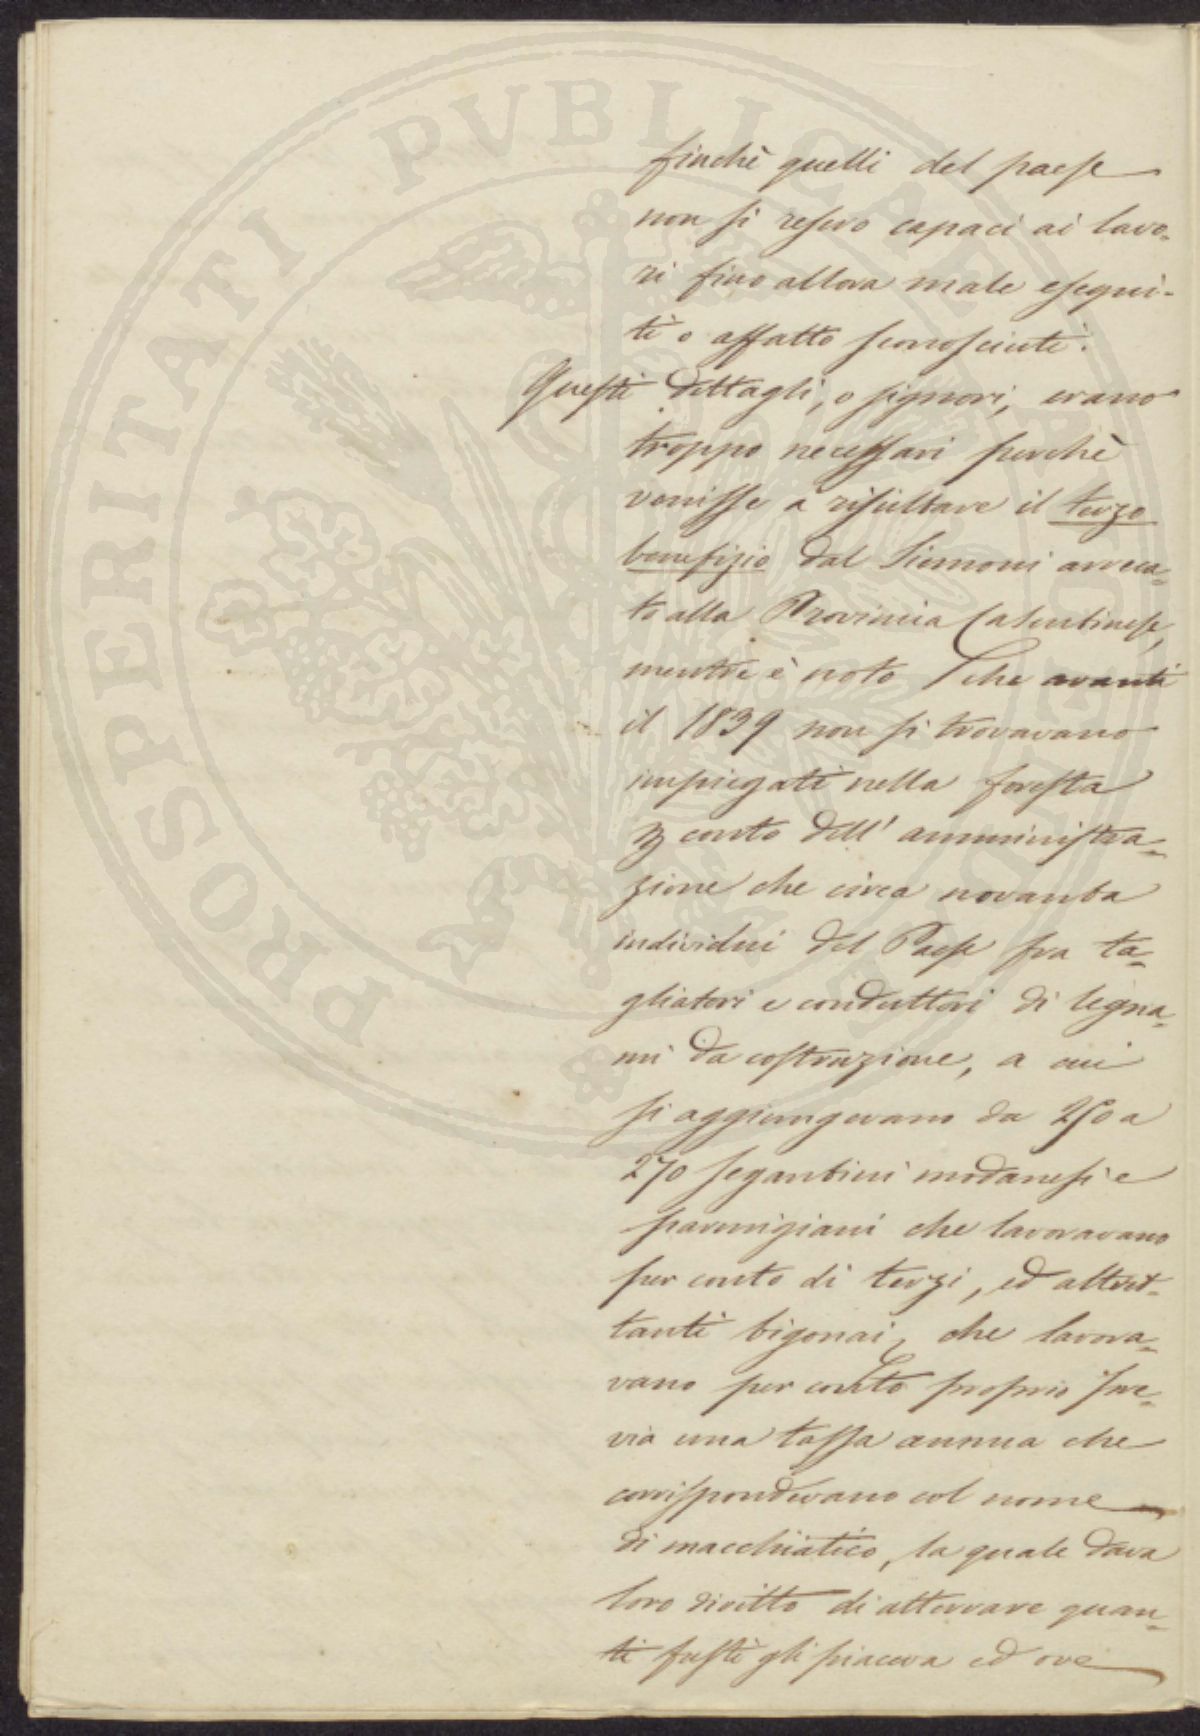 PROSPERITATI PVBLICAE
finchè quelli del paese
non si resero capaci ai lavo-
ri fino allora male esegui-
ti o affatto sconosciuti.
Questi dettagli, o signori, erano
troppo necessari perchè
venisse a risultare il terzo
benefizio dal Siemoni arreca-
to alla Provincia Casentinese,
mentre è noto che avanti
il 1839 non si trovavano
impiegati nella foresta
conto dell' amministra-
zione che circa novanta
individui del Paese fra ta-
gliatori e conduttori di legna-
mi da costruzione, a cui
si aggiungevano da 250 a
270 segantini modanesi e
parmigiani che lavoravano
per conto di terzi, ed altret-
tanti bigonai, che lavora-
vano per conto proprio pre-
via una tassa annua che
corrispondevano col nome
di macchiatico, la quale dava
loro diritto di atterrare quan-
ti fusti gli piaceva ed ove